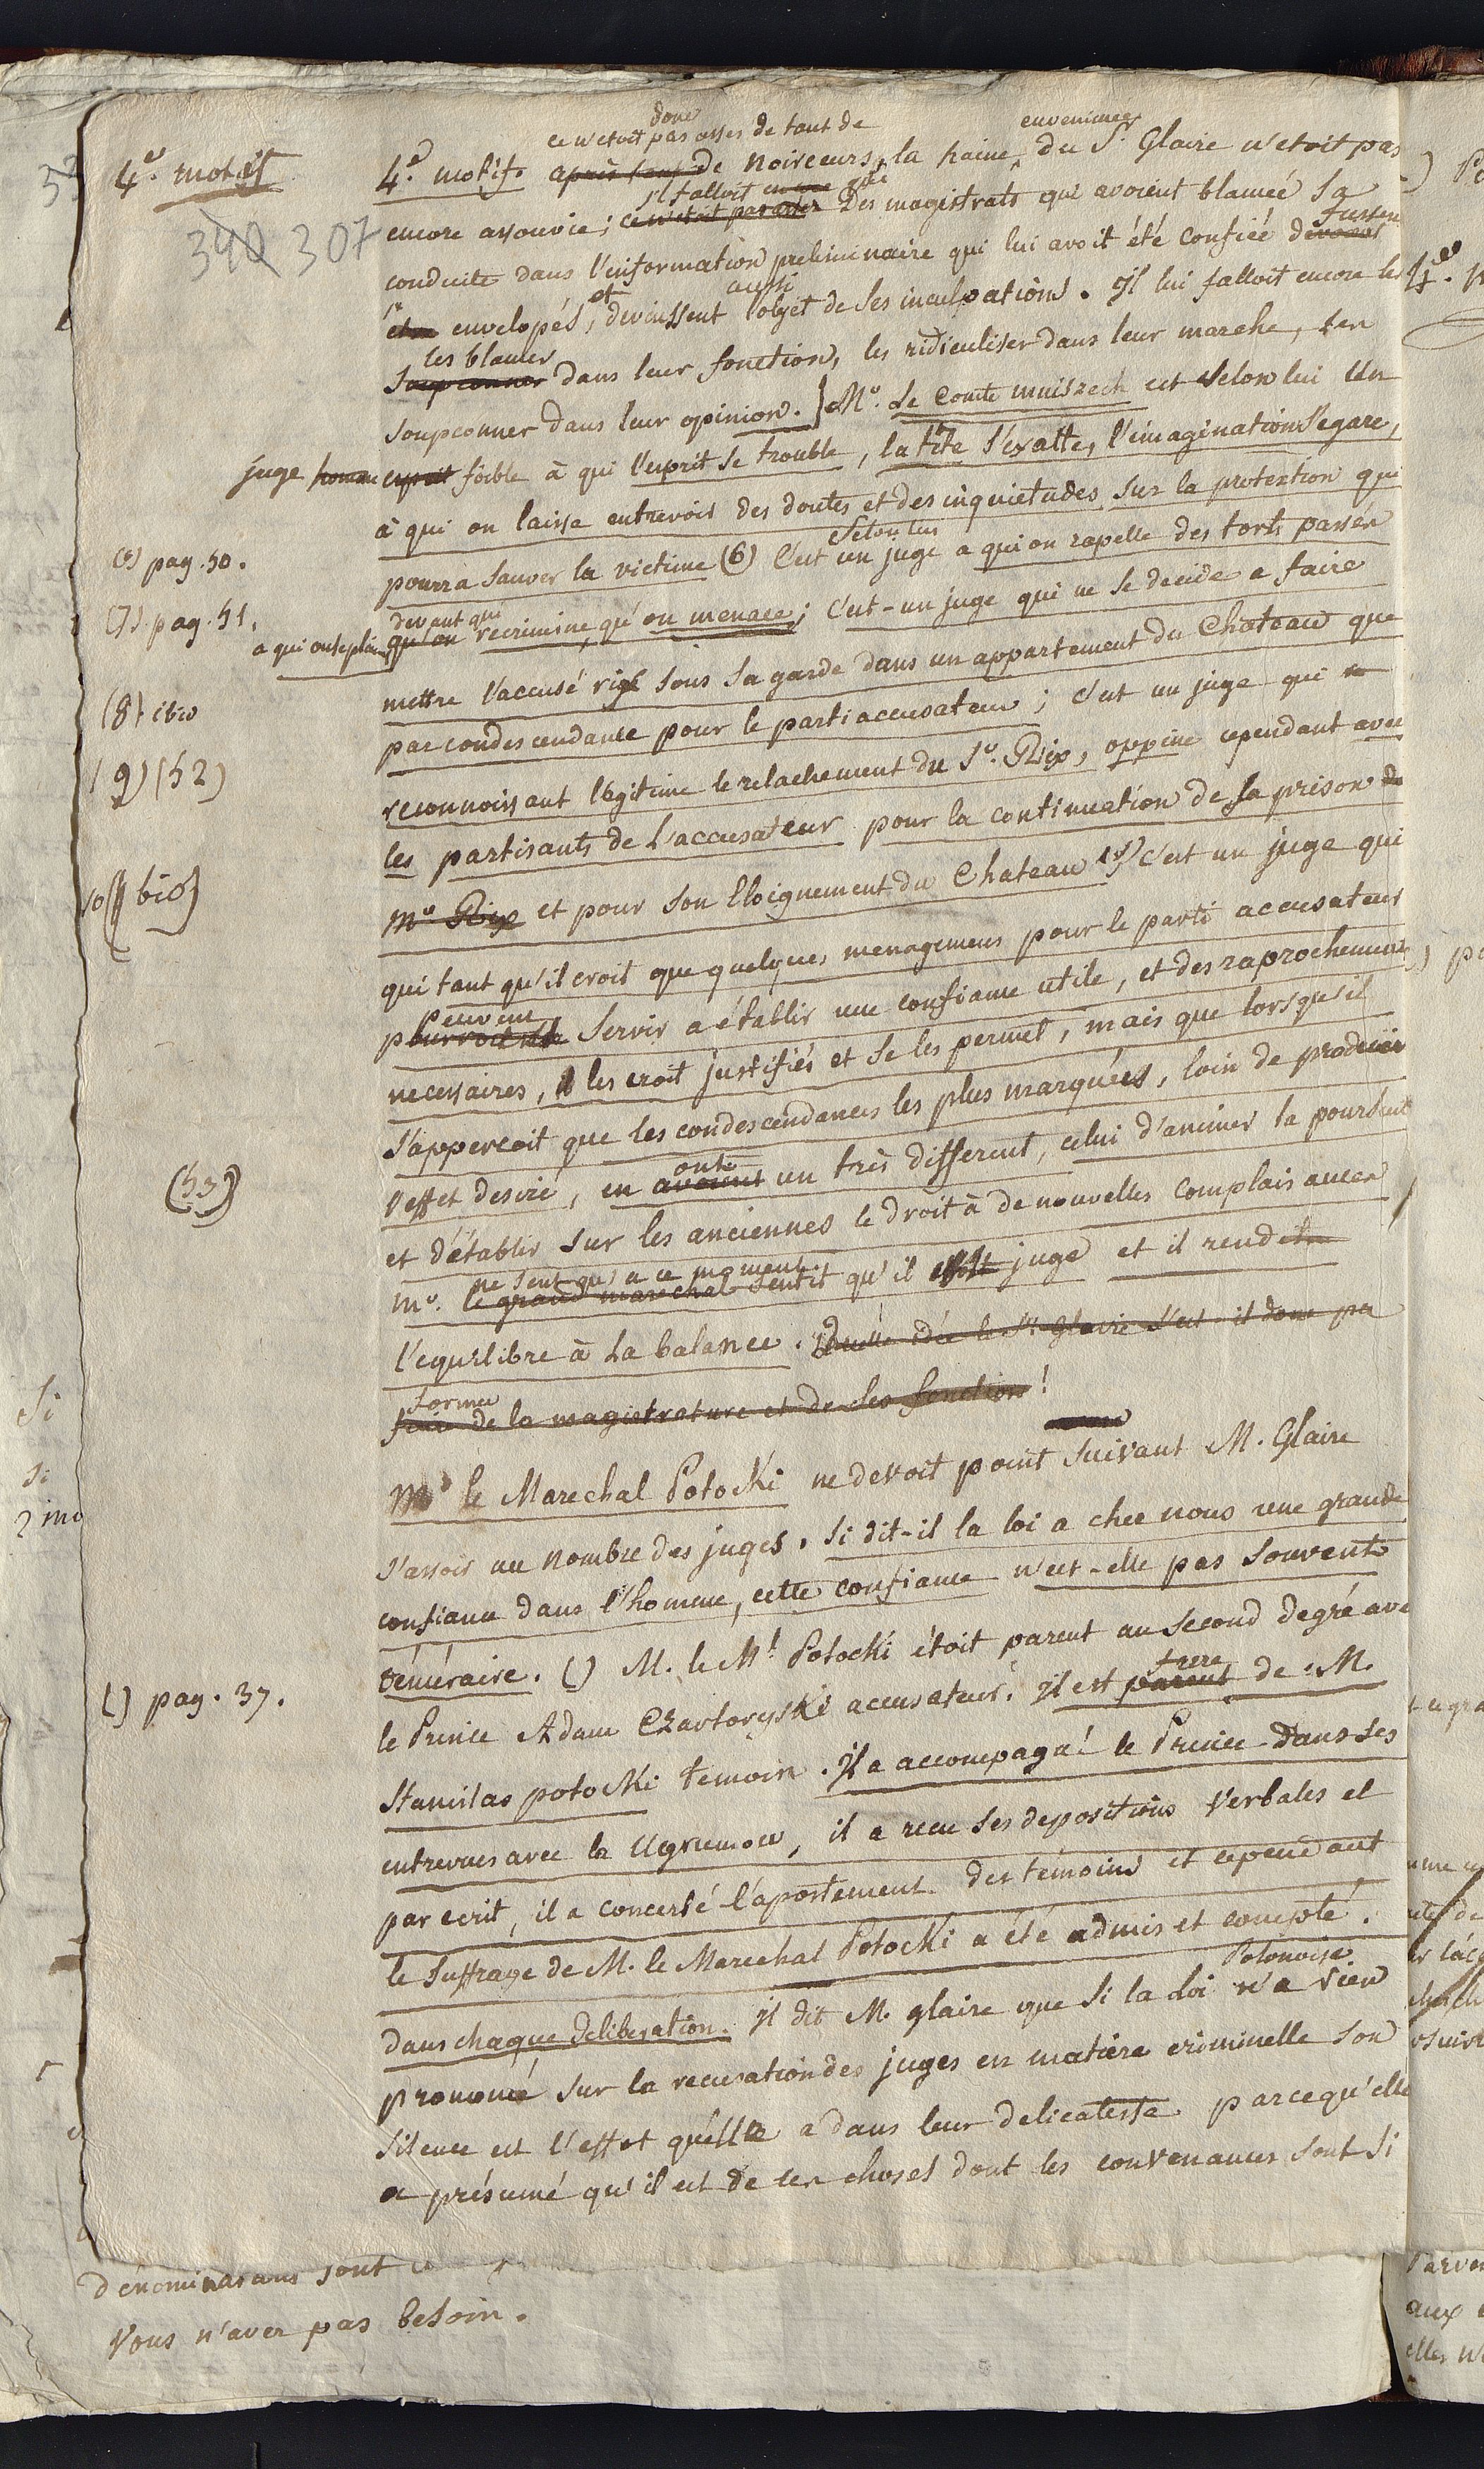 4.e motif
340 307
donc
ce n'etoit pas assés de tant de
envenimée
4.e motif. après tant de noirceurs, la haine du S.r Glaire n'etoit pas
il falloit encore que
encore assouvie; ce n'etoit pas assez Des magistrats qui avoient blamée sa
fussent
conduite dans l'information preliminaire qui lui avoit été confiée devoient
et
aussi
etre envelopés, devinssent l'objet de ses inculpations. Il lui falloit encore les
les blamer
soupconner dans leur fonction, les ridiculiser dans leur marche, les
soupconner dans leur opinion. } M.r Le Comte mniszech est selon lui un
juge homme esprit foible à qui l'esprit se trouble, la tête s'exalte, l'imagination s'egare,
à qui on laisse entrevoir des doutes et des inquietudes sur la protection qui
selon lui
pourra sauver la victime (6) C'est un juge a qui on rapelle des torts passés
(6) pag. 50.
devant qui
a qui on se plaint, qu'on recrimine, qu'on menace; c'est-un juge qui ne se decide a faire
(7) pag. 51.
mettre l'accusé rix sous sa garde dans un appartement du Chateau que
par condescendance pour le parti accusateur; c'est un juge qui
(8) ibid
reconnoissant légitime le relachement du S.r Rix, oppine cependant avec
(9) (52)
les partisants de l'accusateur pour la continuation de sa prison de
M.r Rix et pour son Eloignement du Chateau (9) c'est un juge qui
10 (ibid)
qui tant qu'il croit que quelques menagemens pour le parti accusateur
peuvent
pourroient servir a établir une confiance utile, et des raprochemens
necessaires, il les croit justifiés et se les permet, mais que lorsqu'il
s'appercoit que les condescendances les plus marquées, loin de produire
ont
l'effet desiré, en avoient un très different, celui d'animer la poursuite
(53)
et d'établir sur les anciennes le droit à de nouvelles complaisances
ne sent qu'a ce moment
M.r le grand marechal sentit qu'il est juge et il rend
l'equilibre à la balance. Quelle idée le S.r Glaire s'est-il donc pu
former
faire de la magistrature et de ses fonctions!
M.r le Marechal Potocki ne devoit point suivant M. Glaire
s'assoir au nombre des juges. Si dit-il la loi a chez nous une grande
confiance dans l'homme, cette confiance n'est-elle pas souvent
téméraire. () M. le M.l Potocki étoit parent au second degré avec
() pag. 37.
frere
le Prince Adam Czartoryski accusateur. Il est parent de M.
Stanislas potocki temoin. Il a accompagné le Prince dans ses
entrevues avec la Ugrumow, il a recu ses depositions verbales et
par ecrit, il a concerté l'apostement des témoins et cependant
le suffrage de M. le Marechal Potocki a été admis et compté
Polonoise
dans chaque deliberation. Il dit M. glaire que si la Loi n'a rien
prononcé sur la recusation des juges en matiere criminelle son
silence est l'effet qu'elle a dans leur delicatesse parcequ'elle
a présumé qu'il est de ces choses dont les convenances sont si
Vous n'avez pas besoin.